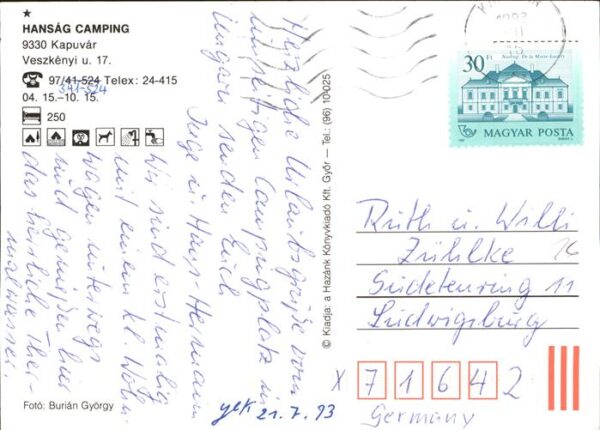 HANSÁG CAMPING
9330 Kapuvár
Veszkényi u. 17.
97/41-524 Telex: 24-415
341-524
04. 15.-10. 15.
250
Herzliche Urlaubsgrüße vom
Campingplatz in
Ungarn senden Euch
Inge u. Hans Hermann
Wir sind erstmalig
mit einem kl. Wohn-
wagen unterwegs
und genießen hier
das herrliche Ther-
malwasser.
Fotó: Burián György
gek 21.7.93
© Kiadja: a Hazánk Könyvkiadó Kft. Győr — Tel.: (96) 10-025
30 Ft
MAGYAR POSTA
Ruth u. Willi
Zühlke
Sudetenring 11
Ludwigsburg
X 71642
Germany